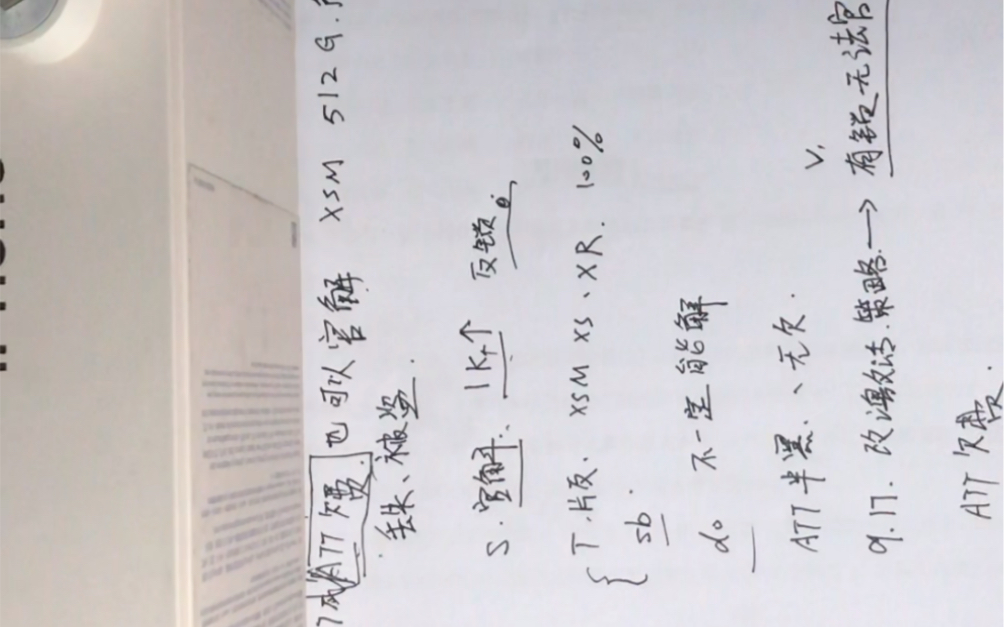 ATT 欠费 也可以官解 XSM 512 G.
丢失、被盗.
S. 官解. 1K↑ 反锁.
T 片版. XSM XS、XR. 100%
sb.
do 不一定能解
ATT 半黑、无欠. V,
9.17. 改激活策略. → 有锁无法官
ATT 欠费.